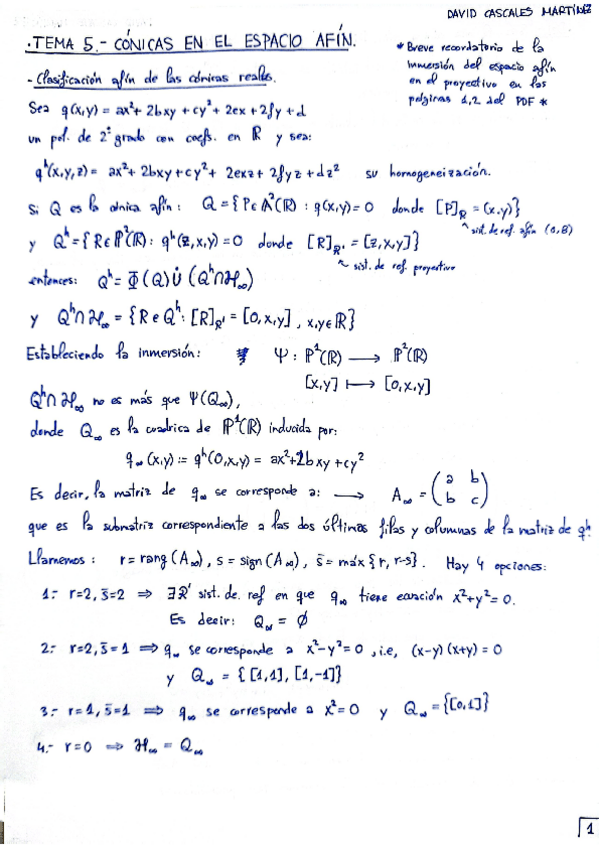 DAVID CASCALES MARTÍNEZ
· TEMA 5.- CÓNICAS EN EL ESPACIO AFÍN.
* Breve recordatorio de la
inmersión del espacio afín
en el proyectivo en las
páginas 1,2 del PDF *
- Clasificación afín de las cónicas reales.
Sea q(x,y) = ax² + 2bxy + cy² + 2ex + 2fy + d
un pol. de 2º grado con coefs. en ℝ y sea:
qʰ(x,y,z) = ax² + 2bxy + cy² + 2exz + 2fyz + dz² su homogeneización.
Si Q es la cónica afín: Q = {P∈A²(ℝ) : q(x,y)=0 donde [P]_R = (x,y)}
↖ sist. de ref. afín (O,B)
y Qʰ = {R∈P²(ℝ) : qʰ(z,x,y)=0 donde [R]_R' = [z,x,y]}
↖ sist. de ref. proyectivo
entonces: Qʰ = Φ(Q) ∪̇ (Qʰ∩H∞)
y Qʰ∩H∞ = {R∈Qʰ : [R]_R' = [0,x,y], x,y∈ℝ}
Estableciendo la inmersión: Ψ : P¹(ℝ) ⟶ P²(ℝ)
[x,y] ⟼ [0,x,y]
Qʰ∩H∞ no es más que Ψ(Q∞),
donde Q∞ es la cuádrica de P¹(ℝ) inducida por:
q∞(x,y) := qʰ(0,x,y) = ax²+2bxy+cy²
Es decir, la matriz de q∞ se corresponde a: ⟶ A∞ = (a b
b c)
que es la submatriz correspondiente a las dos últimas filas y columnas de la matriz de qʰ.
Llamemos: r = rang(A∞), s = sign(A∞), s̄ = máx{r, r-s}. Hay 4 opciones:
1.- r=2, s̄=2 ⟹ ∃R' sist. de. ref en que q∞ tiene ecuación x²+y²=0.
Es decir: Q∞ = ∅
2.- r=2, s̄=1 ⟹ q∞ se corresponde a x²-y²=0, i.e, (x-y)(x+y)=0
y Q∞ = {[1,1], [1,-1]}
3.- r=1, s̄=1 ⟹ q∞ se corresponde a x²=0 y Q∞ = {[0,1]}
4.- r=0 ⟹ H∞ = Q∞
1